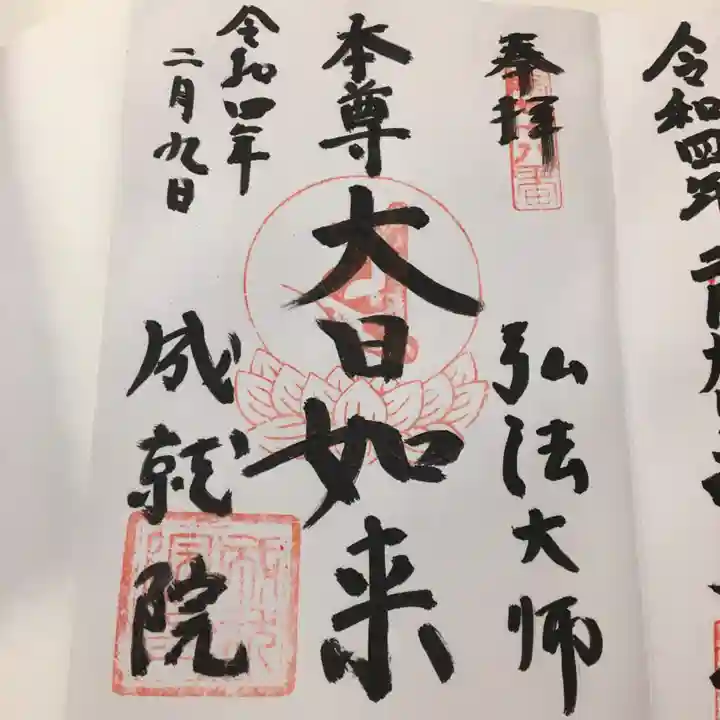 令和四年二月九日
奉拝
弘法大師
本尊
大日如来
令和四年
二月九日
成就院